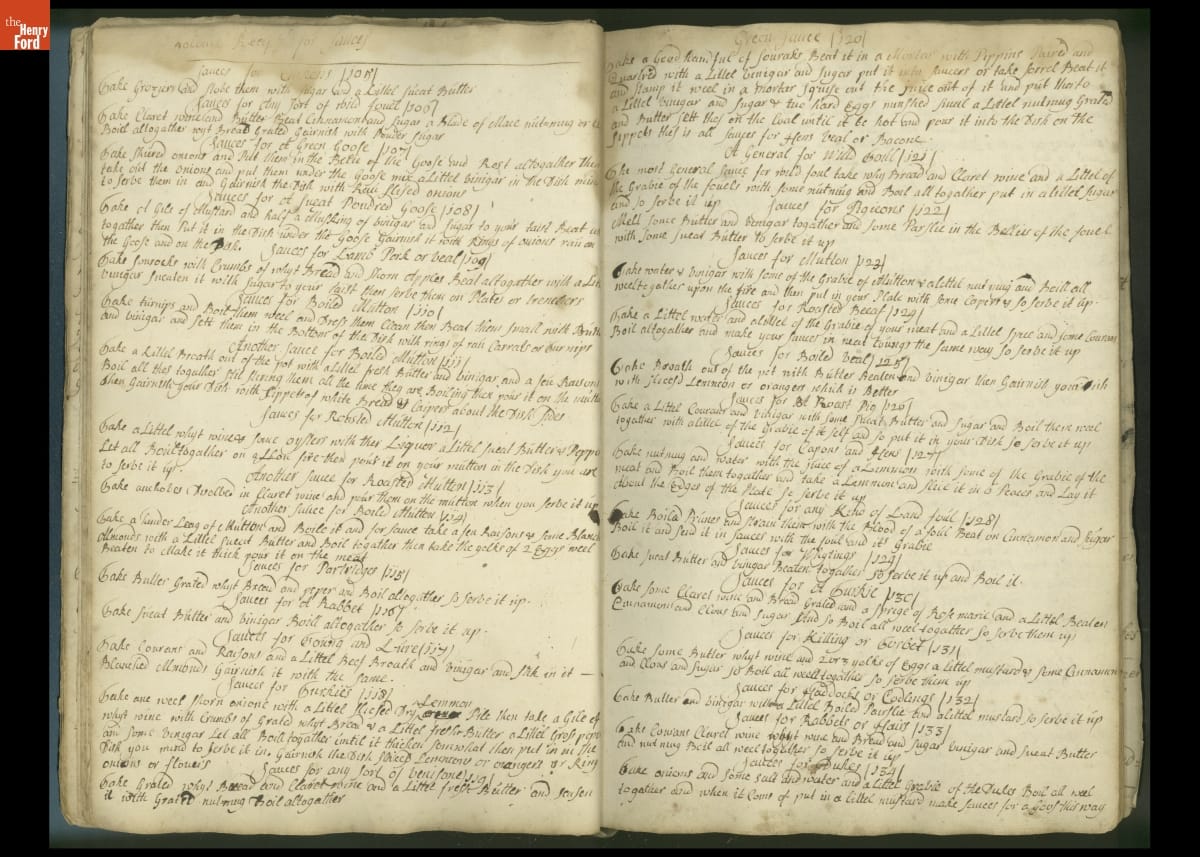 the
Henry
Ford
for Sauces
Sauces for 105
Take and stobe them with sugar and a Littel sweat Butter
Sauces for Eny sort of wild foull 106
Take Claret wine and Butter Beat Cinnamon and sugar a Blade of Mace nutmug or
Boil altogather wyt Bread Grated Gairnish with Pouder sugar
Sauces for A Green Goose 107
Take onions and Put them in the Belie of the Goose and Rost altogather then
take out the onions and put them under the Goose mix a Littel vinigar in the Dish
to serbe them in and Gairnish the Dish with Rau slised onions
Sauces for A sweat Poudred Goose 108
Take A Gile of Mustard and half a of vinigar and sugar to your taist Beat
together then Put it in the Dish under the Goose Gairnish it with Rings of onions raw on
the Goose and on the Dish
Sauces for Lamb Pork or veal 109
Take with Crumbs of whyt Bread and shorn Apples Beal altogather with a
vinigar sweaten it with sugar to your taist then serbe them on Plates or trenchers
Sauces for Boild Mutton 110
Take turnips and Boil them weel and Dress them Clean then Beat them small with
and vinigar and sett them in the Bottom of the Dish with rings of raw Carrats or turnips
Another sauce for Boild Mutton 111
Take a Littel Broath out of the pot with a Littel fresh Butter and vinigar and a feu Raisons
Boil all thes together the stiring them all the time they are Boiling then pour it on the mutton
then Gairnish your Dish with sippets of white Bread & Capers about the Dish sides
Sauces for Rosted Mutton 112
Take a Littel whyt wine & some oysters with ther Liquor a Littel sweat Butter &
Let all Boil together on a slow fire then pour it on your mutton in the Dish you
to serbe it up
Another Sauce for Roasted Mutton 113
Take anchoves Disolbed in Claret wine and pour them on the mutton when you serbe it up
Another sauce for Boild Mutton 114
Take a tinder Leag of Mutton and Boyle it and for sauce take a feu Raisons & some
Almonds with a Littel sweat Butter and Boil togather then take the yolks of 2 Eggs weel
Beaten to Make it thick pour it on the meat
Sauces for Partridges 115
Take Butter Grated whyt Bread and peper and Boil altogather so serbe it up
Sauces for A Rabbet 116
Take sweat Butter and vinigar Boill altogather So serbe it up
Sauces for and 117
Take Courans and Raisons and a Littel Beef Broath and vinigar and in it
Blansched Almonds Gairnish it with the same
Sauces for Turkies 118
Take ane weel shorn onione with a Littel slised Dry Lemmon Pile then take a Gile of
whyt wine with Crumbs of Grated whyt Bread & a Littel fresh Butter a Littel Gross
and some vinigar Let all Boil together until it thicken somwhat then put in in the
Dish you mind to serbe it in Gairnish the Dish sliced Lemmons or orangers or Ring
onions or flouirs
Sauces for any sort of venisone 119
Take Grated whyt Bread and Claret wine and a Littel fresh Butter and seasen
it with Grated nutmug Boil altogather
Green Sauce 120
Take a Good handful of Beat it in a Mortar with Pippins Paired and
Quartred with a Littel vinigar and sugar put it into saucers or take sorrel Beat it
and stamp it weel in a mortar squise out the juice out of it and put therto
a Littel vinigar and sugar & two hard Eggs minshed small a Littel nutmug Grated
and Butter sett thes on the Coal until it be hot and pour it into the Dish on the
sippets this is all sauces for Hens Veal or Bacone
A General for Wild foull 121
The most General sauce for wild foul take whyt Bread and Claret wine and a Littel of
the Grabie of the fouels with some nutmug and Boil all together put in a Littel sugar
and so serbe it up
Sauces for Pigeons 122
Mell some Butter and vinigar togather and some Parslee in the Bellies of the fouel
with some sweat Butter to serbe it up
Sauces for Mutton 123
Take water & vinigar with some of the Grabie of Mutton & a Littel nutmug and Boil all
weel together upon the fire and then put in your Plate with some Capers & so serbe it up
Sauces for Roasted Beeaf 124
Take a Littel water and a Littel of the Grabie of your meat and a Littel and some
Boil altogather and make your sauces in neat toungs the same way so serbe it up
Sauces for Boild Veal 125
Take Broath out of the pot with Butter Beaten and vinigar then Gairnish your Dish
with slicesd Lemmon or orangers which is Better
Sauces for A Roast Pig 126
Take a Littel Courans and vinigar with some sweat Butter and sugar and Boil them weel
togather with a Littel of the Grabie of it self and so put it in your Dish so serbe it up
Sauces for Capons and Hens 127
Take nutmug and water with the juice of a Lemmon with some of the Grabie of the
meat and Boil them together and take a Lemmon and slice it in 6 Peaces and Lay it
about the Edges of the Plate so serbe it up
Sauces for any Kind of Land foull 128
Take Boild Prunes and strain them with the Blood of a foul Beat on Cinnamon and sugar
Boil it and send it in sauces with the foul and its Grabie
Sauces for 129
Take sweat Butter and vinigar Beaten together so serbe it up and Boil it
Sauces for A Turkie 130
Take some Claret wine and Bread Grated and a sprige of Rosemarie and a Littel Beaten
Cinnamon and Clove and sugar And so Boil all weel together so serbe them up
Sauces for Killing or Turbet 131
Take some Butter whyt wine and 2 or 3 yolks of Eggs a Littel mustard & some Cinnamon
and Clous and sugar so Boil all weel together so serbe them up
Sauces for Haddocks or Codlings 132
Take Butter and vinigar with a Littel Boiled Parslie and a Littel mustard so serbe it up
Sauces for Rabbets or Hairs 133
Take Courans Claret wine or whyt wine and Bread and sugar vinigar and sweat Butter
and nutmug Boil all weel together so serbe it up
Sauces for Dukes 134
Take onions and some salt and water and a Littel Grabie of the Dukes Boil all weel
togather and when it Coms of put in a Littel mustard make sauces for a Goos this way